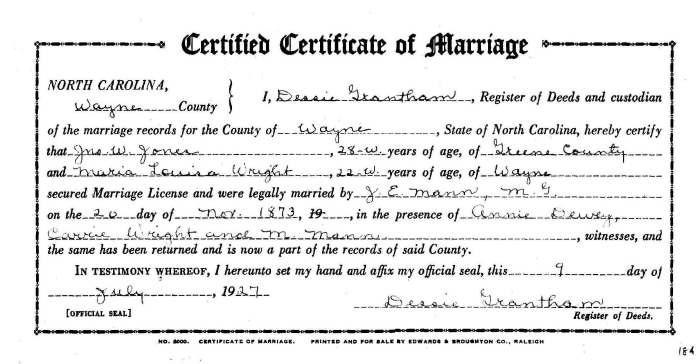 Certified Certificate of Marriage
NORTH CAROLINA,
Wayne County } I, Dessie Grantham, Register of Deeds and custodian
of the marriage records for the County of Wayne, State of North Carolina, hereby certify
that Jno. W. Jones, 28-W. years of age, of Greene County
and Maria Louisa Wright, 22-W. years of age, of Wayne
secured Marriage License and were legally married by J. E. Mann, M. G.
on the 20 day of Nov. 1873, 19, in the presence of Annie Dewey,
Carrie Wright and M. Mann, witnesses, and
the same has been returned and is now a part of the records of said County.
IN TESTIMONY WHEREOF, I hereunto set my hand and affix my official seal, this 9 day of
July, 1927
Dessie Grantham
[OFFICIAL SEAL] Register of Deeds.
NO. 5000. CERTIFICATE OF MARRIAGE. PRINTED AND FOR SALE BY EDWARDS & BROUGHTON CO., RALEIGH
184